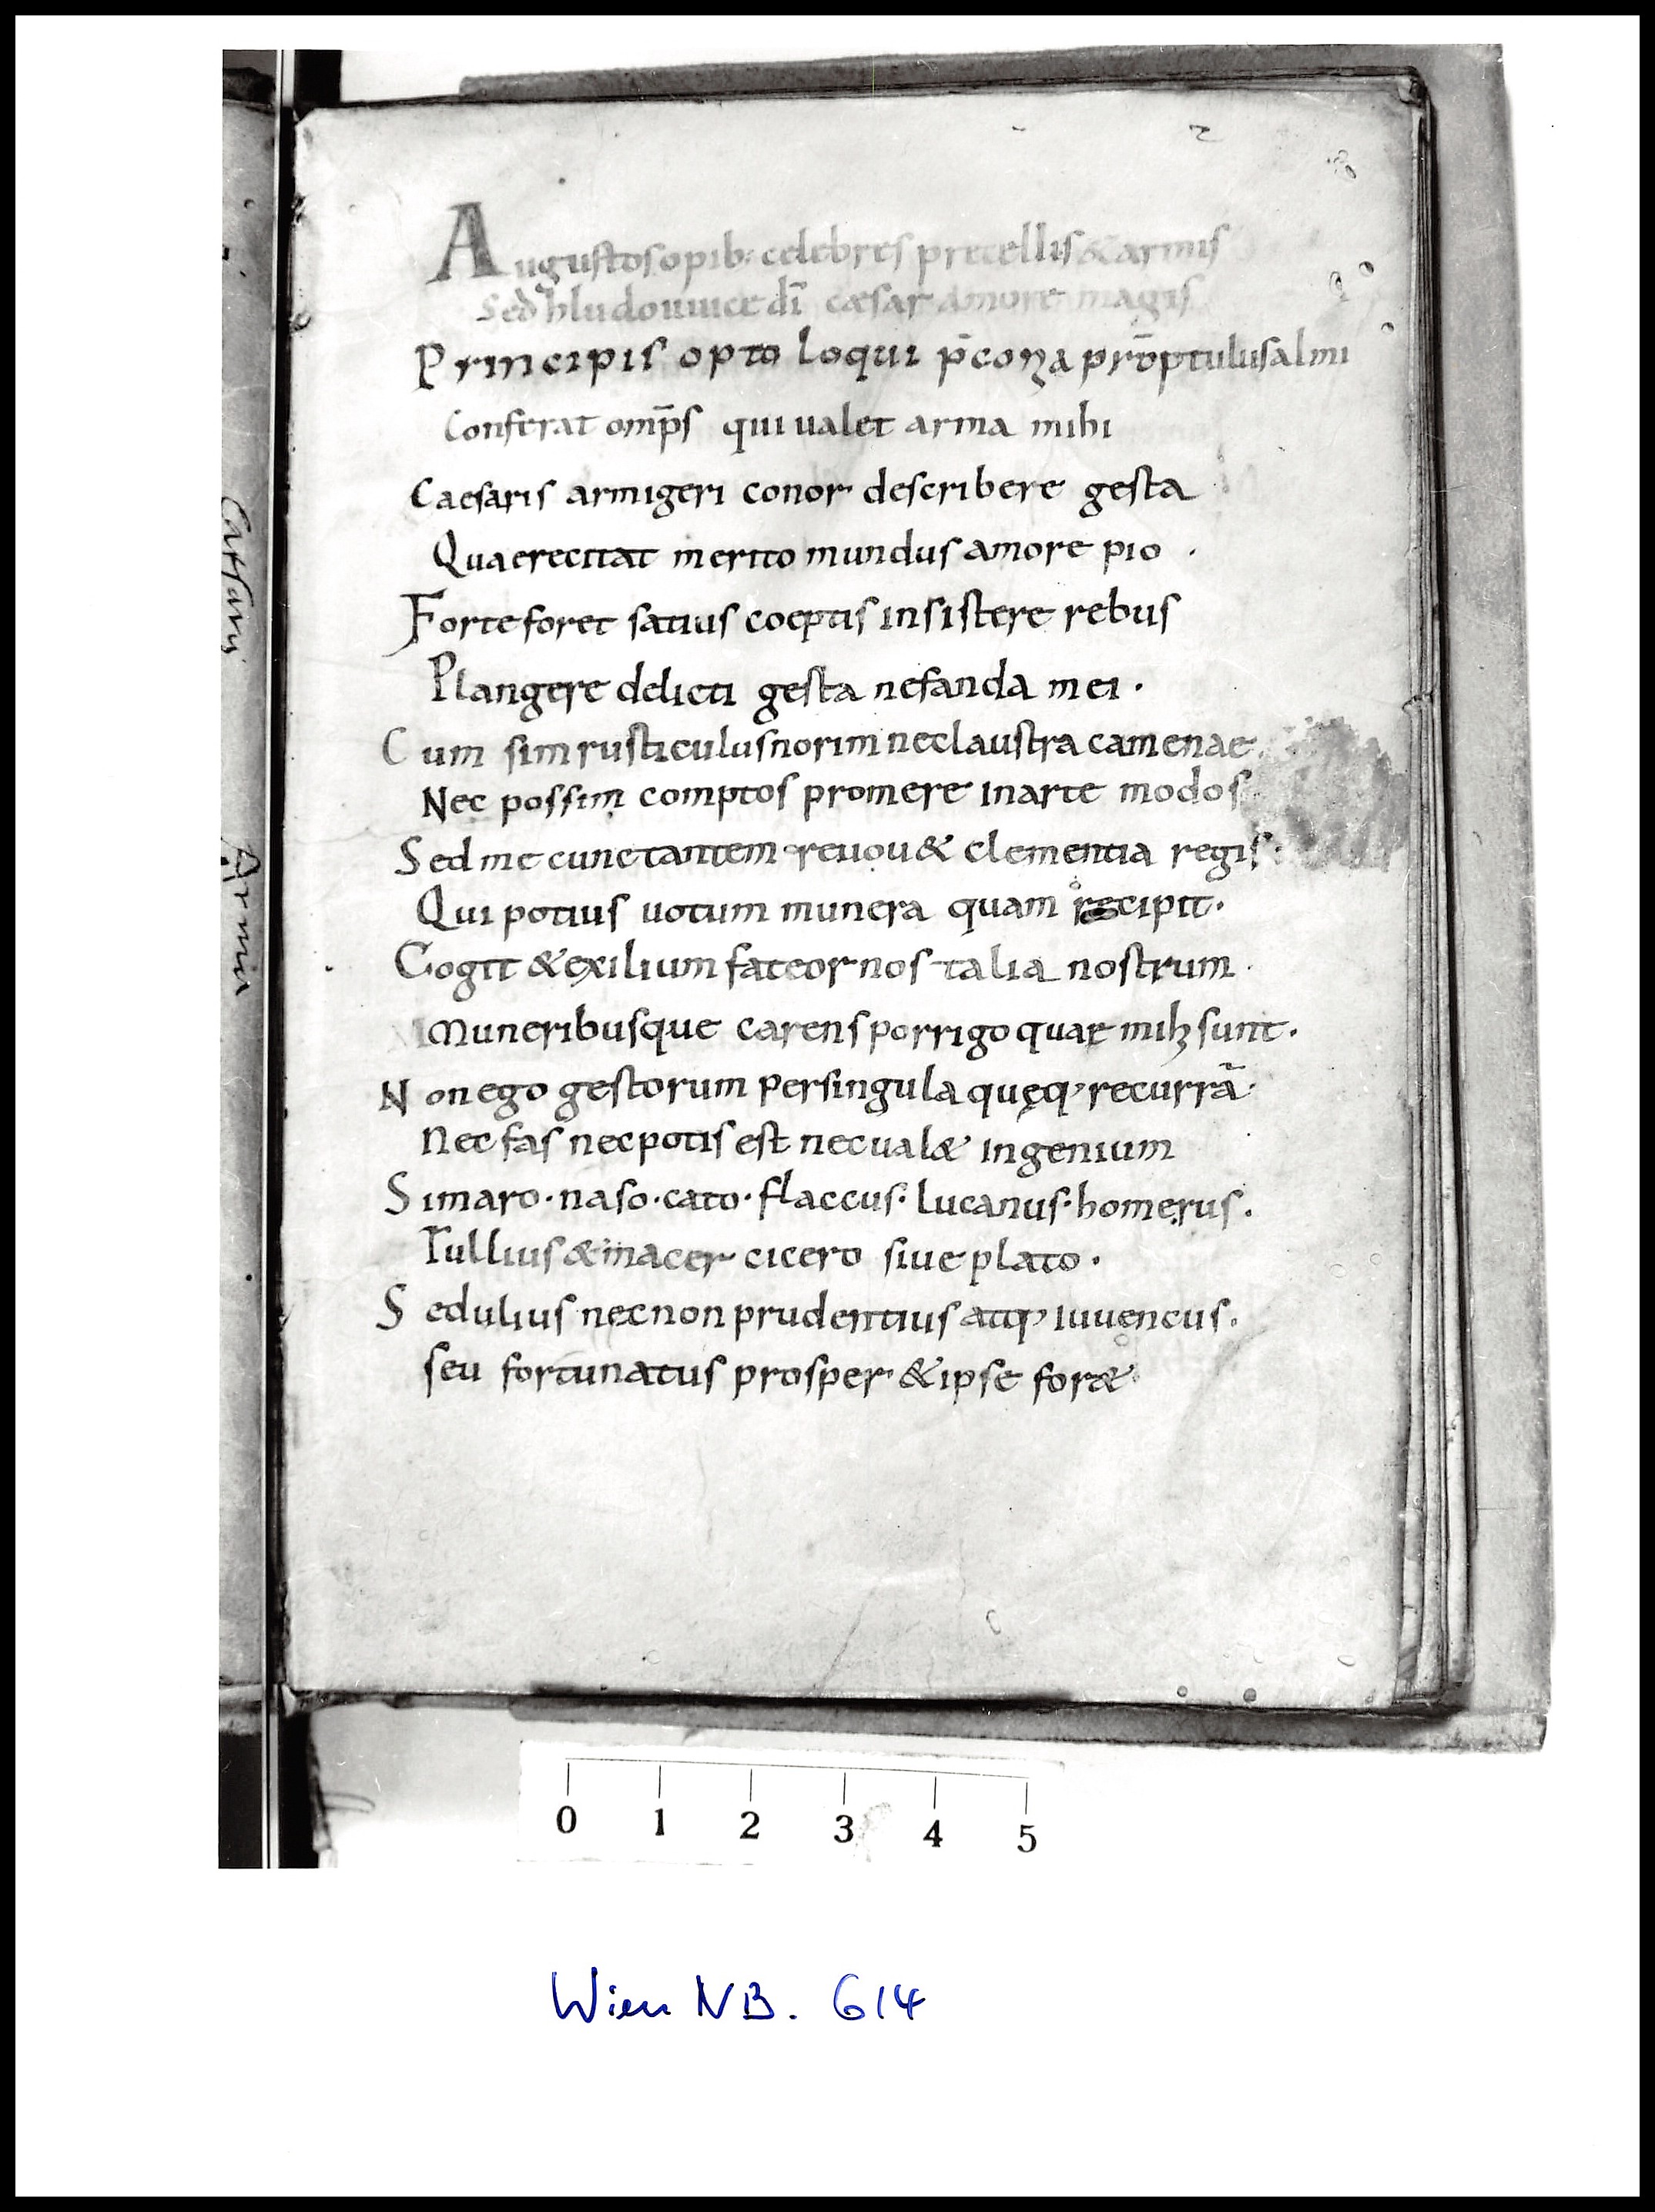 2
Augustos opib: celebres precellis & armis
Sed hludouuice dī cæsar amore magis
Principis opto loqui p̄conia prōptulus almi
Conferat omp̄s qui ualet arma mihi
Caesaris armigeri conor describere gesta
Quae recitat merito mundus amore pio .
Forte foret satius coeptis insistere rebus
Plangere delicti gesta nefanda mei ·
Cum sim rusticulus norim nec laustra camenae
Nec possim comptos promere in arte modos
Sed me cunctantem reuou& clementia regis·
Qui potius uotum munera quam recipit.
Cogit & exilium fateor nos talia nostrum
Muneribusque carens porrigo quae mihi sunt.
Non ego gestorum per singula quęq· recurrā·
Nec fas nec potis est nec ual& ingenium
Si maro · naso · cato · flaccus · lucanus · homerus .
Tullius & macer cicero siue plato ·
Sedulius nec non prudentius atq· iuuencus .
seu fortunatus prosper & ipse for&
Caesaris
Arma
0 1 2 3 4 5
Wien NB. 614